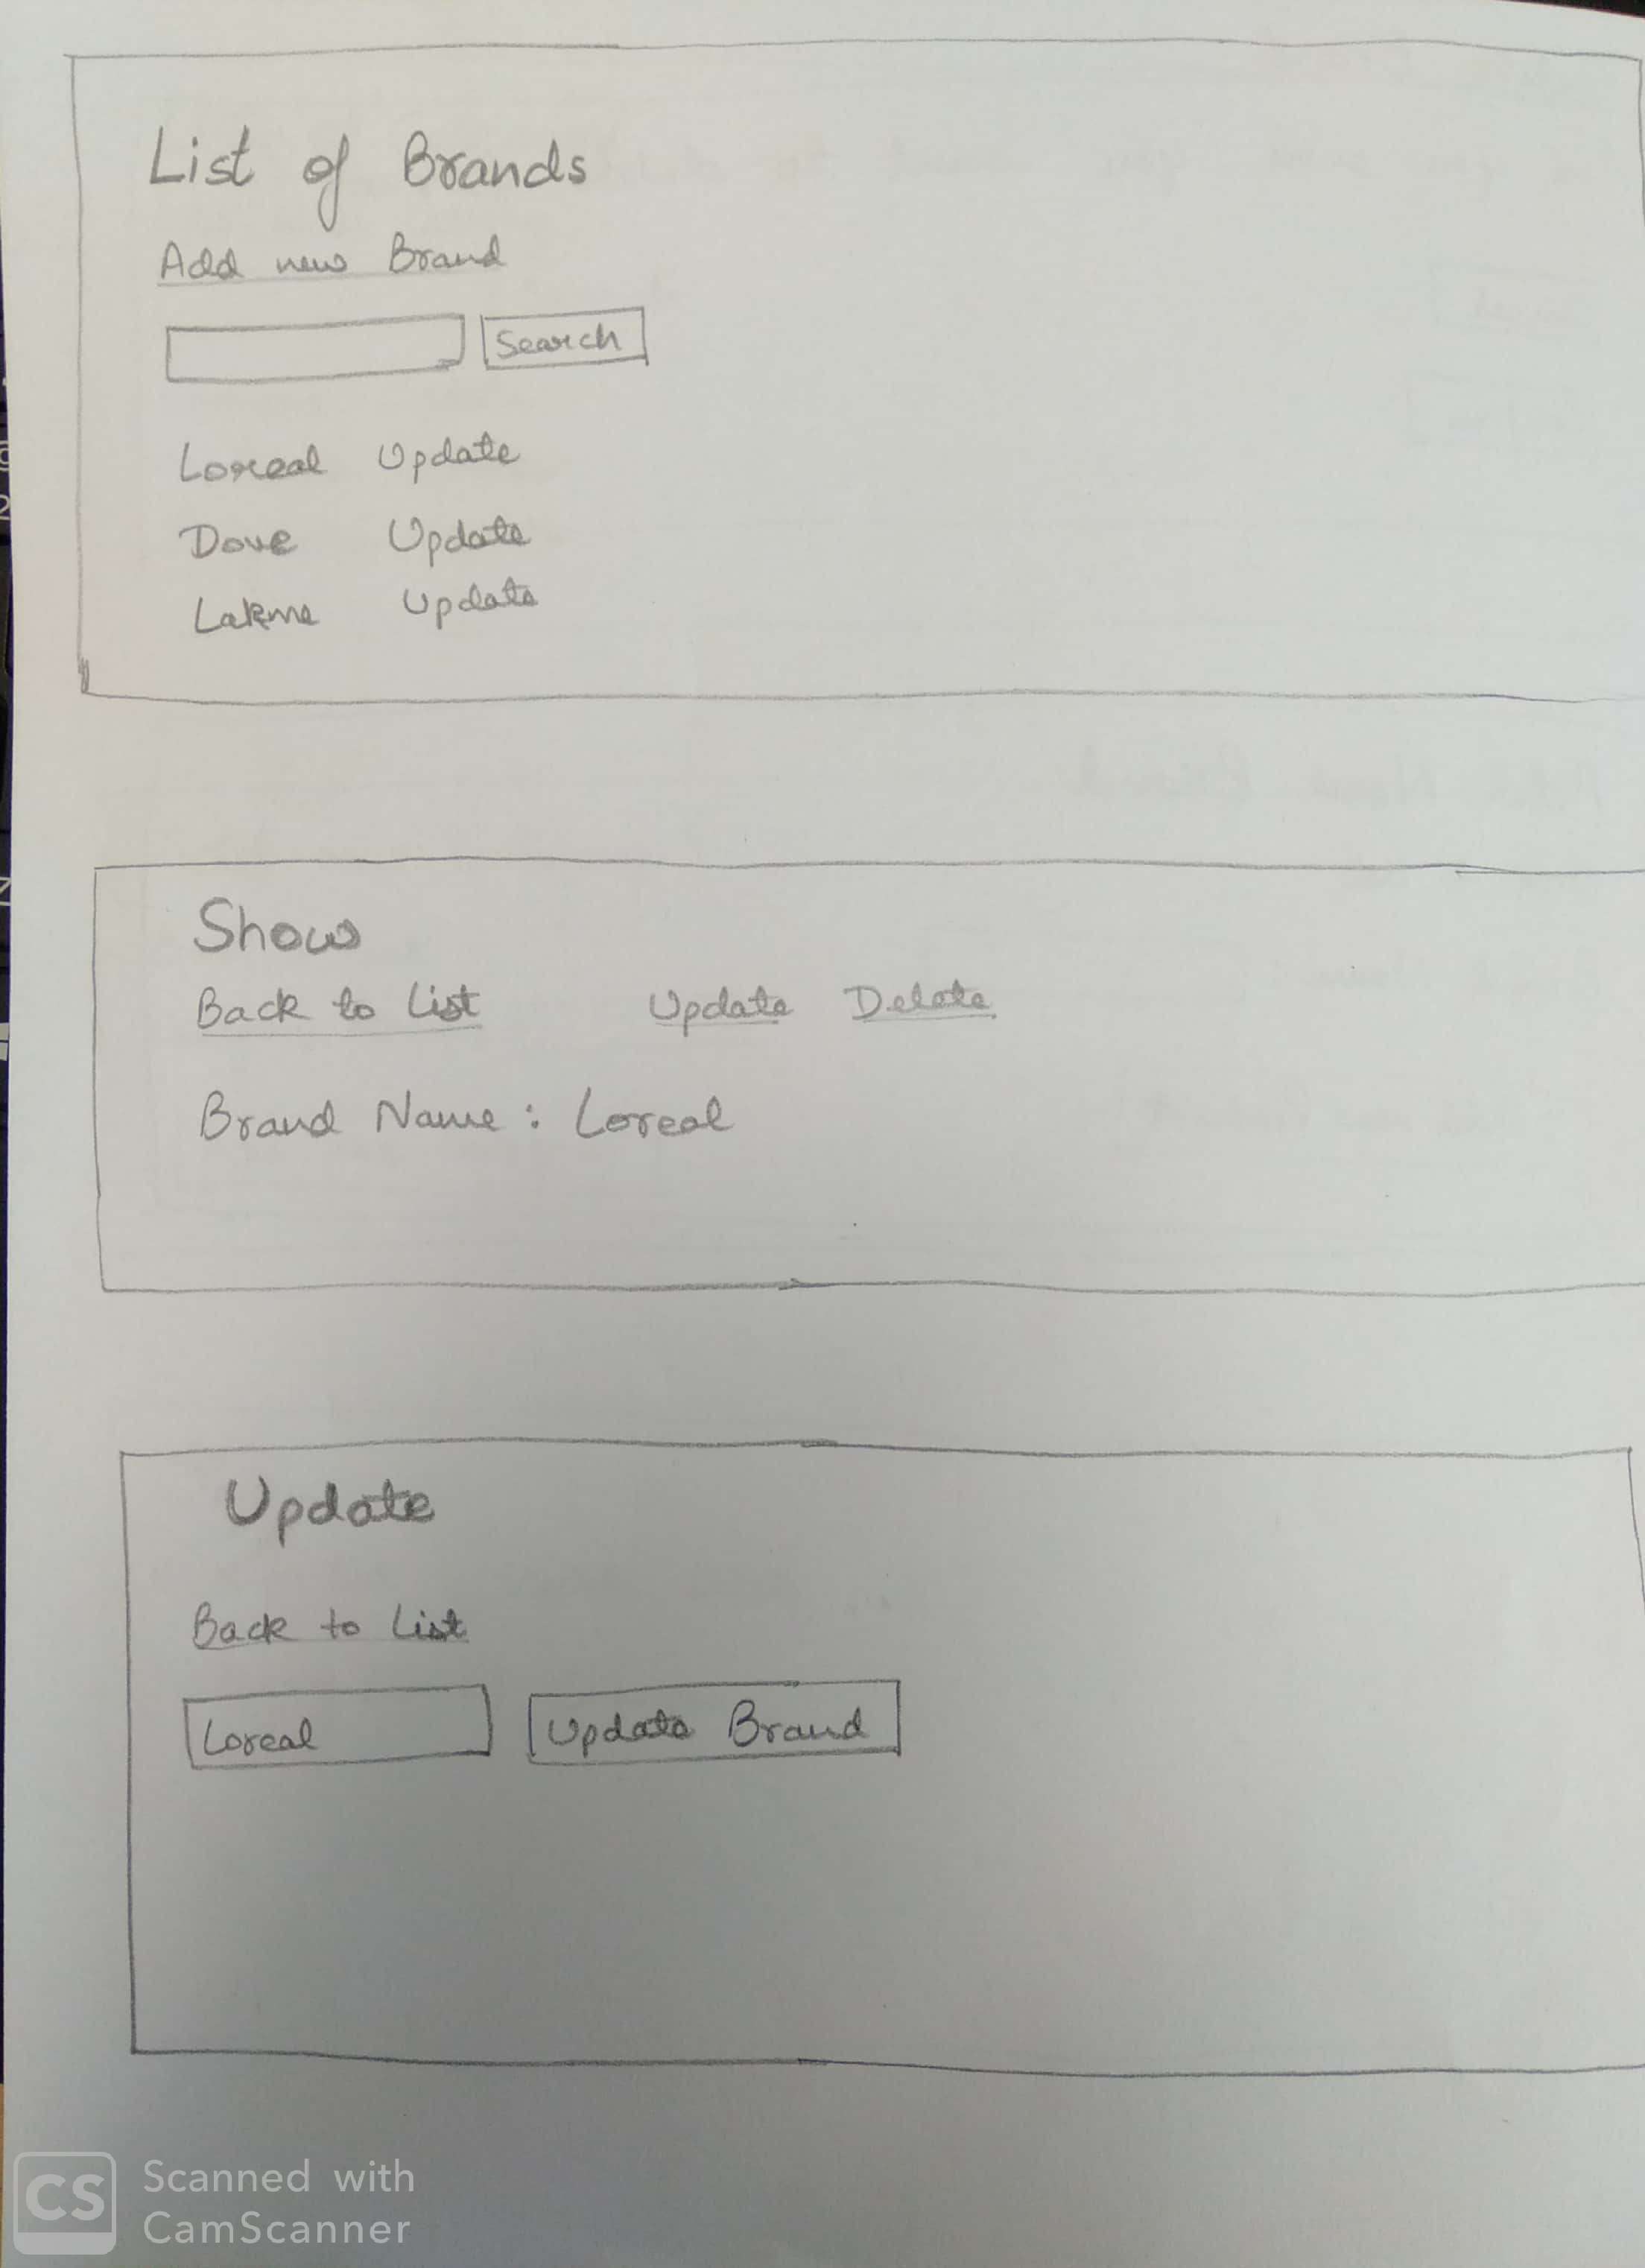 List of Brands
Add new Brand
Search
Loreal Update
Dove Update
Lakme Update
Show
Back to List Update Delete
Brand Name : Loreal
Update
Back to List
Loreal Update Brand
CS Scanned with
CamScanner